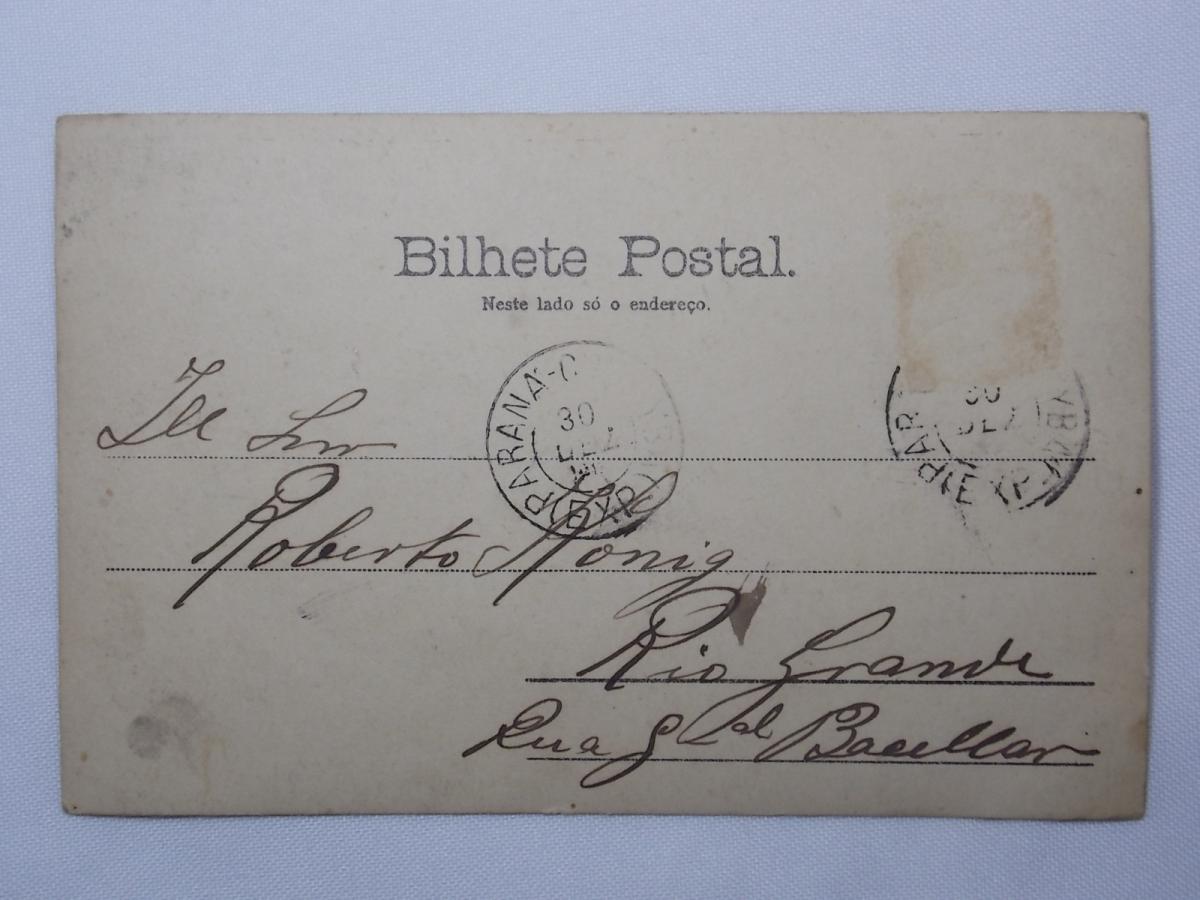 Bilhete Postal.
Neste lado só o endereço.
PARANÁ-C 30 DEZ EXP
PAR 30 DEZ YBA EXP
Ill Snr
Roberto König
Rio Grande
Rua Gral Bacellar